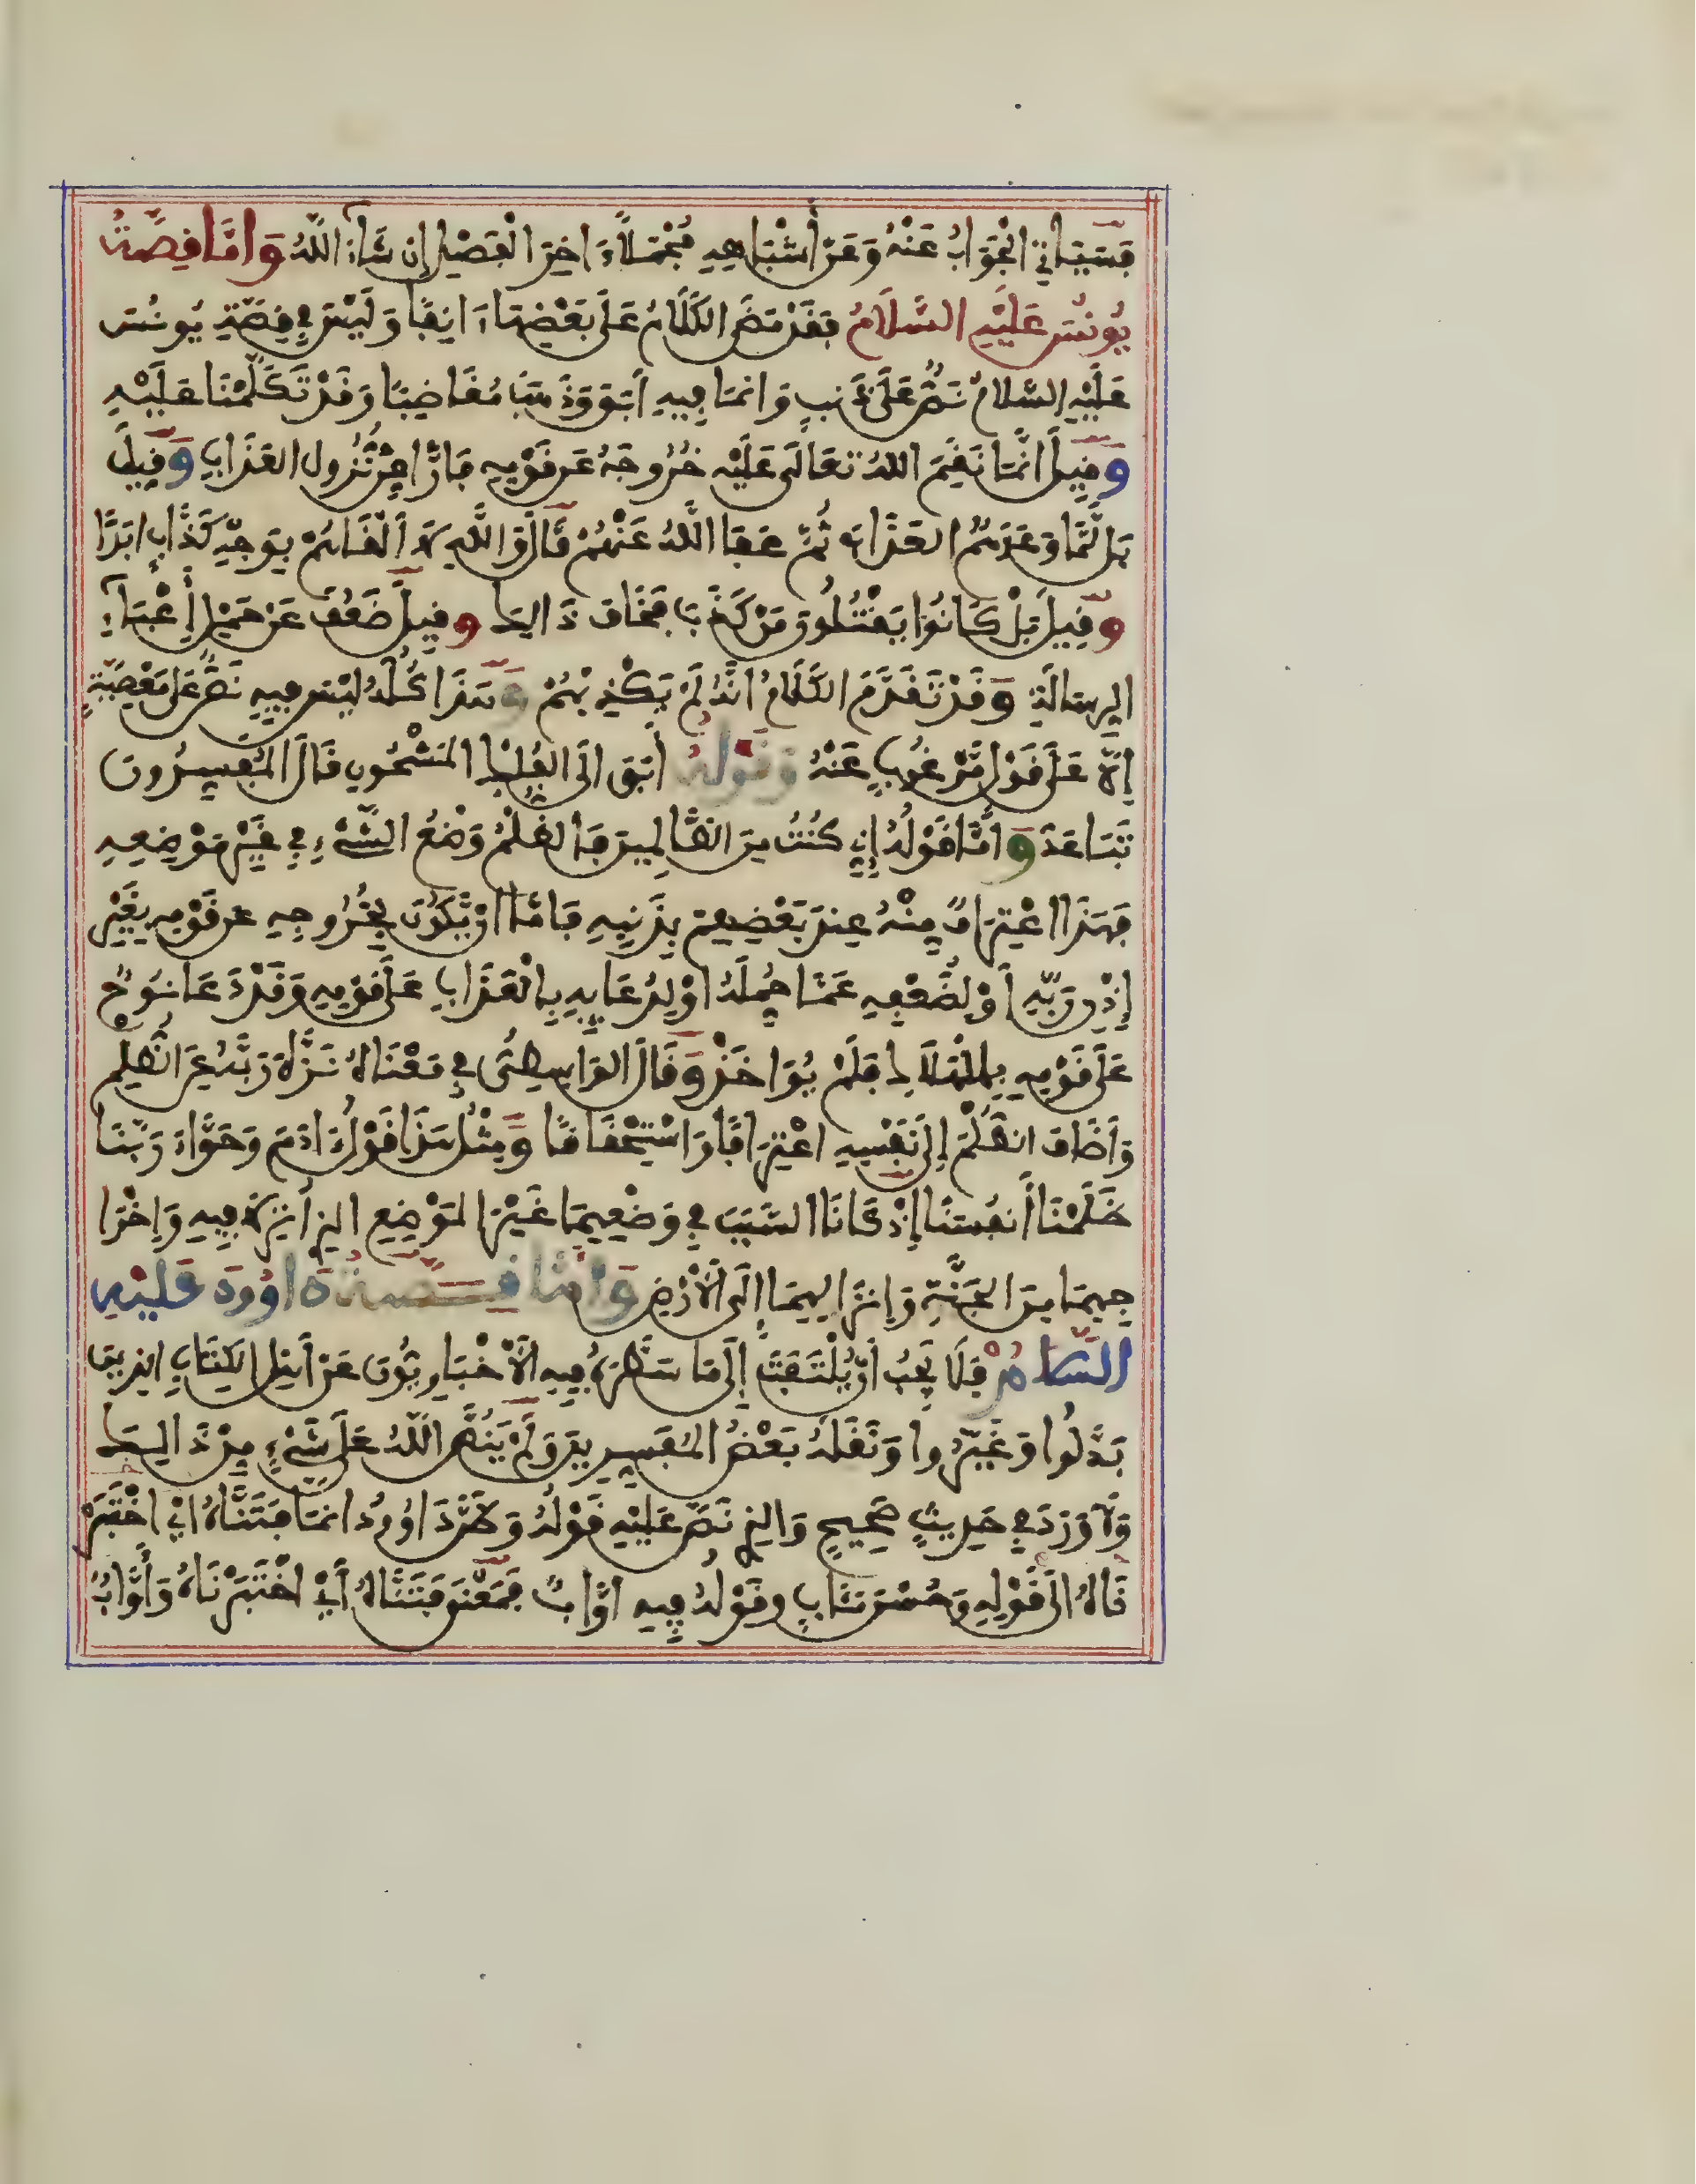 فَسَيَاتِي الْجَوَابُ عَنْهُ وَعَنْ أَشْبَاهِهِ مُجْمَلًا ءَاخِرَ الْفَصْلِ إِن شَاءَ اللَّهُ وَأَمَّا قِصَّةُ
يُونُسَ عَلَيْهِ السَّلَامُ فَقَدْ مَضَى الْكَلَامُ عَلَى بَعْضِهَا ءَانِفًا وَلَيْسَ فِي قِصَّةِ يُونُسَ
عَلَيْهِ السَّلَامُ نَصٌّ عَلَى ذَنبٍ وَإِنَّمَا فِيهِ أَبَقَ وَذَهَبَ مُغَاضِبًا وَقَدْ تَكَلَّمْنَا عَلَيْهِ
وَقِيلَ إِنَّمَا نَقَمَ اللَّهُ تَعَالَى عَلَيْهِ خُرُوجَهُ عَن قَوْمِهِ فَارًّا مِنْ نُزُولِ الْعَذَابِ وَقِيلَ
بَلْ لَمَّا وَعَدَهُمُ الْعَذَابَ ثُمَّ عَفَا اللَّهُ عَنْهُمْ قَالَ وَاللَّهِ لَا أَلْقَاهُمْ بِوَجْهِ كَذَّابٍ أَبَدًا
وَقِيلَ بَلْ كَانُوا يَقْتُلُونَ مَنْ كَذَبَ فَخَافَ ذَالِكَ وَقِيلَ ضَعُفَ عَنْ حَمْلِ أَعْبَاءِ
الرِسَالَةِ وَقَدْ تَقَدَّمَ الْكَلَامُ أَنَّهُ لَمْ يَكْذِبْهُمْ وَهَذَا كُلُّهُ لَيْسَ فِيهِ نَصٌّ عَلَى مَعْصِيَةٍ
إِلَّا عَلَى قَوْلٍ مَرْغُوبٍ عَنْهُ وَقَوْلُهُ أَبَقَ إِلَى الْفُلْكِ الْمَشْحُونِ قَالَ الْمُفَسِّرُونَ
تَبَاعَدَ وَأَمَّا قَوْلُهُ إِنِّي كُنْتُ مِنَ الظَّالِمِينَ فَالظُّلْمُ وَضْعُ الشَّيْءِ فِي غَيْرِ مَوْضِعِهِ
فَهَذَا اعْتِرَافٌ مِنْهُ عِنْدَ بَعْضِهِمْ بِذَنبِهِ فَإِمَّا أَنْ يَّكُونَ لِخُرُوجِهِ عَن قَوْمِهِ بِغَيْرِ
إِذْنِ رَبِّهِ أَوْ لِضُعْفِهِ عَمَّا حُمِّلَهُ أَوْ لِدُعَائِهِ بِالْعَذَابِ عَلَى قَوْمِهِ وَقَدْ دَعَا نُوحٌ
عَلَى قَوْمِهِ بِالْهَلَاكِ فَلَمْ يُؤَاخَذْ وَقَالَ الْوَاسِطِيُّ فِي مَعْنَاهُ نَزَّهَ رَبَّهُ عَنِ الظُّلْمِ
وَأَضَافَ الظُّلْمَ إِلَى نَفْسِهِ اعْتِرَافًا وَاسْتِحْقَاقًا وَمِثْلُ هَذَا قَوْلُ ءَادَمَ وَحَوَّاءَ رَبَّنَا
ظَلَمْنَا أَنفُسَنَا إِذْ كَانَا السَّبَبَ فِي وَضْعِهِمَا غَيْرَ الْمَوْضِعِ الذِي أُنزِلَا فِيهِ وَإِخْرَا
جِهِمَا مِنَ الْجَنَّةِ وَإِنزَالِهِمَا إِلَى الْأَرْضِ وَأَمَّا قِصَّةُ دَاوُودَ عَلَيْهِ
السَّلَامُ فَلَا يَجِبُ أَنْ يُّلْتَفَتَ إِلَى مَا سَطَّرَهُ فِيهِ الْأَخْبَارِيُّونَ عَنْ أَهْلِ الْكِتَابِ الذِينَ
بَدَّلُوا وَغَيَّرُوا وَنَقَلَهُ بَعْضُ الْمُفَسِّرِينَ وَلَمْ يَنُصَّ اللَّهُ عَلَى شَيْءٍ مِنْ ذَالِكَ
وَلَا وَرَدَ فِي حَدِيثٍ صَحِيحٍ وَالذِي نَصَّ عَلَيْهِ قَوْلُهُ وَظَنَّ دَاوُودُ أَنَّمَا فَتَنَّاهُ أَيْ اخْتَبَرْ
نَاهُ إِلَى قَوْلِهِ وَحُسْنَ مَئَابٍ وَقَوْلُهُ فِيهِ أَوَّابٌ فَمَعْنَى فَتَنَّاهُ أَيْ اخْتَبَرْنَاهُ وَأَوَّابٌ